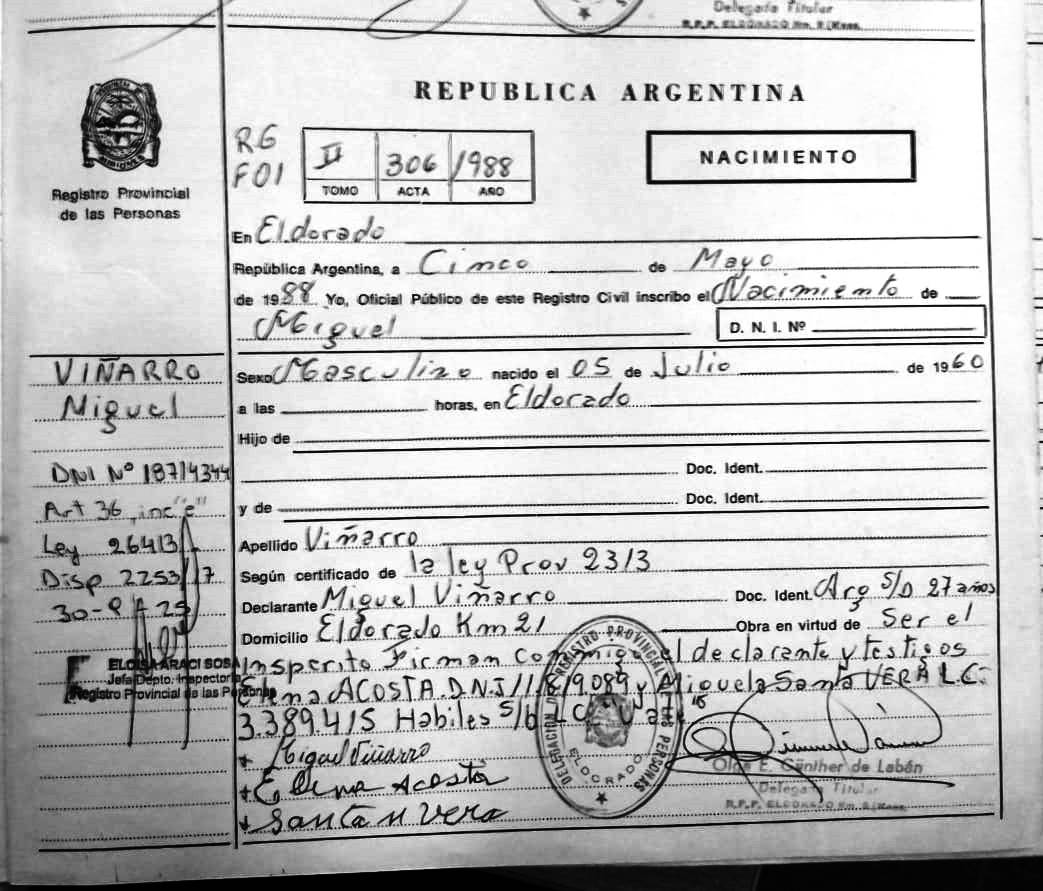 Delegada Titular
R.P.P. ELDORADO
REPUBLICA ARGENTINA
RG
F01
II 306 1988
TOMO ACTA AÑO
NACIMIENTO
Registro Provincial
de las Personas
En Eldorado
República Argentina, a Cinco de Mayo
de 1988 Yo, Oficial Público de este Registro Civil inscribo el Nacimiento de
Miguel
D. N. I. Nº
Sexo Masculino nacido el 05 de Julio de 1960
a las horas, en Eldorado
Hijo de
Doc. Ident.
y de Doc. Ident.
Apellido Viñarro
Según certificado de la ley Prov 2313
Declarante Miguel Viñarro Doc. Ident. Arg S/D 27 años
Domicilio Eldorado Km 21 Obra en virtud de Ser el
Insperito Firman conmigo el declarante y testigos
Elma ACOSTA D.N.I y Miguela Santa VERA L.C.
3.389.415 Habiles
Miguel Viñarro
Elma Acosta
Santa M Vera
VIÑARRO
Miguel
DNI Nº 18714344
Art 36 inc "e"
Ley 26413
Disp 2253/17
ELOISA ARACI SOSA
Jefa Dpto. Inspectoria
Registro Provincial de las Personas
DELEGACION DEL REGISTRO PROVINCIAL DE LAS PERSONAS
ELDORADO
Olga E. Günther de Labán
Delegada Titular
R.P.P. ELDORADO